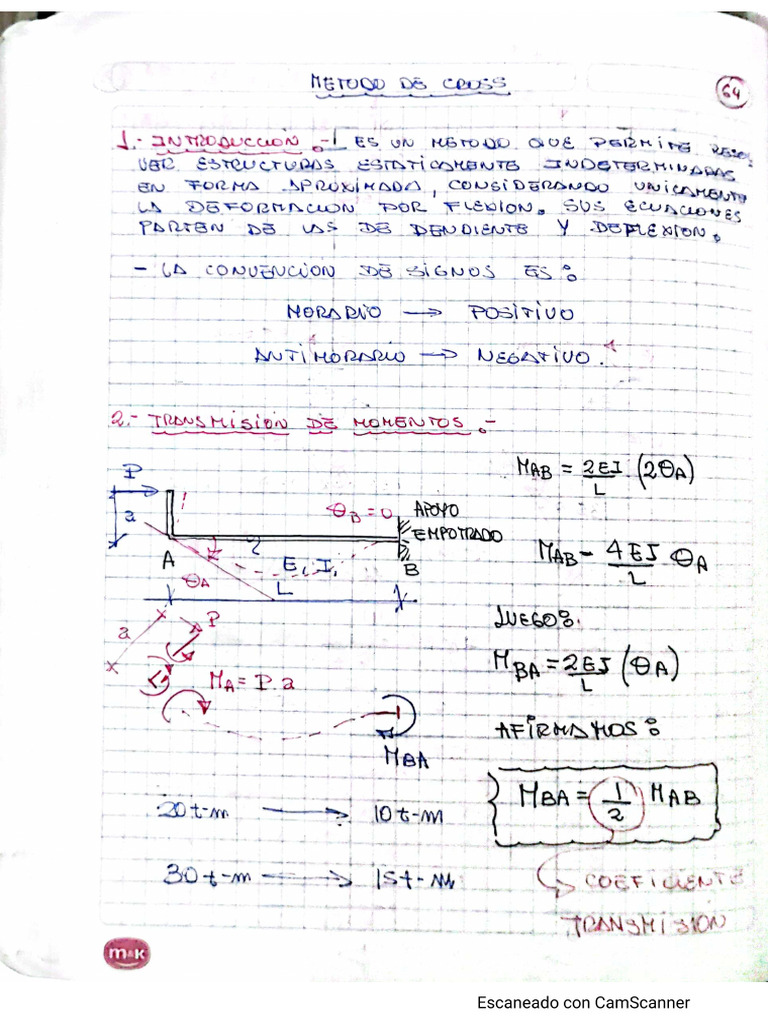 METODO DE CROSS
64
1.- INTRODUCCION.- ES UN METODO QUE PERMITE RESOL
VER ESTRUCTURAS ESTATICAMENTE INDETERMINADAS
EN FORMA APROXIMADA, CONSIDERANDO UNICAMENTE
LA DEFORMACION POR FLEXION. SUS ECUACIONES
PARTEN DE LAS DE PENDIENTE Y DEFLEXION.
- LA CONVENCION DE SIGNOS ES:
HORARIO → POSITIVO
ANTIHORARIO → NEGATIVO.
2.- TRANSMISION DE MOMENTOS.-
P
a
1
2
A
θA
θB = 0
APOYO
EMPOTRADO
E, I,
B
L
MAB = 2EI/L (2θA)
MAB = 4EI/L θA
LUEGO:
MBA = 2EI/L (θA)
a
P
MA = P.a
MBA
AFIRMAMOS:
MBA = 1/2 MAB
20 t-m → 10 t-m
30 t-m → 15 t-m
COEFICIENTE
TRANSMISION
M&K
Escaneado con CamScanner